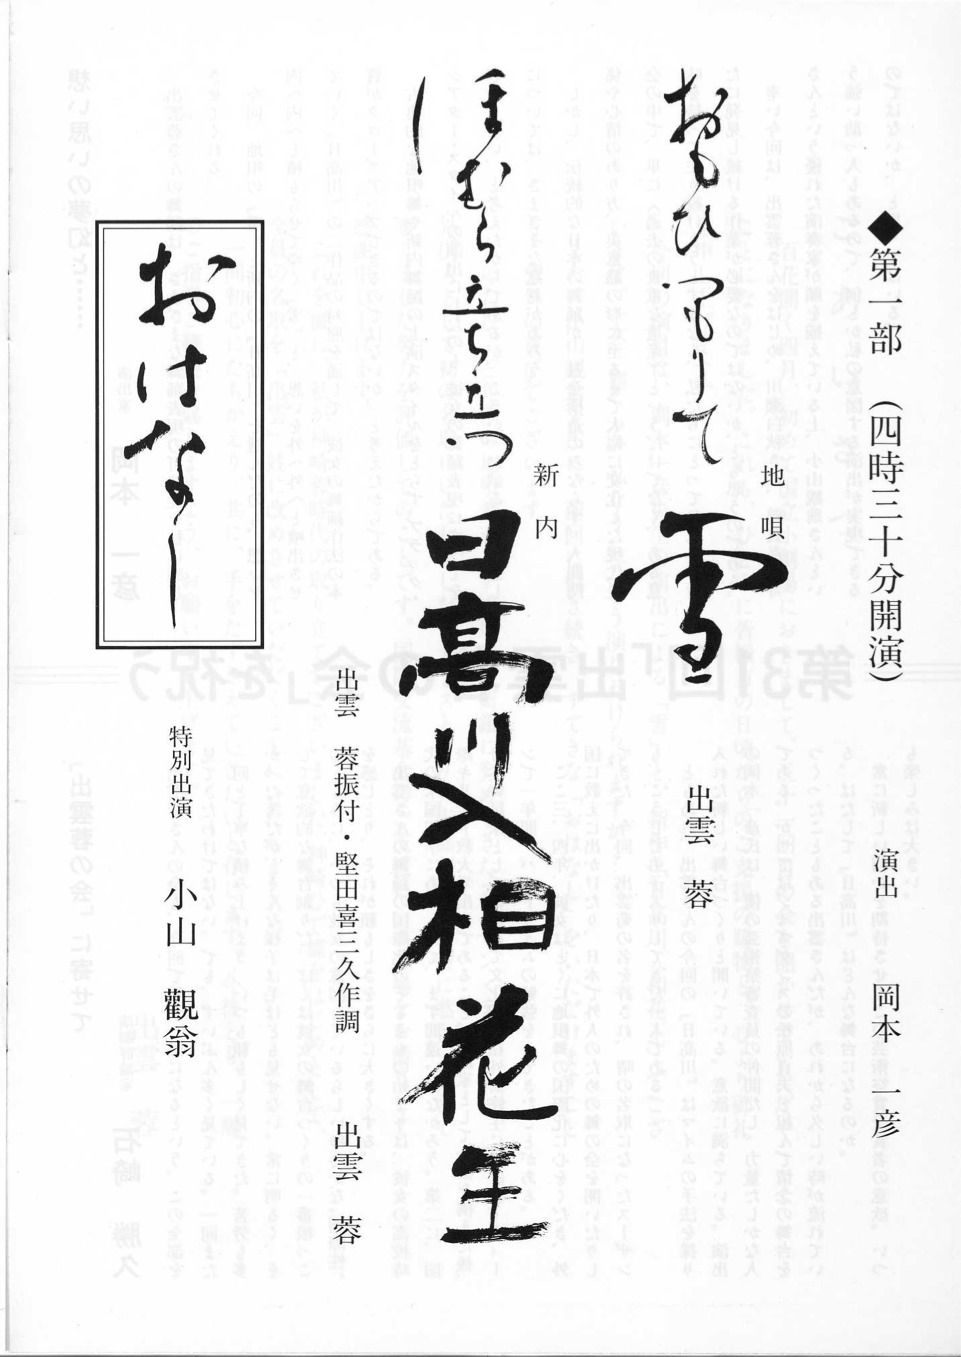 ◆第一部 (四時三十分開演)
演出 岡本 一彦
おもひつもりて
地唄
雪
出雲 蓉
ほむら立ち立つ
新内
日高川入相花王
出雲 蓉振付・堅田喜三久作調
出雲 蓉
おはなし
特別出演 小山 觀翁